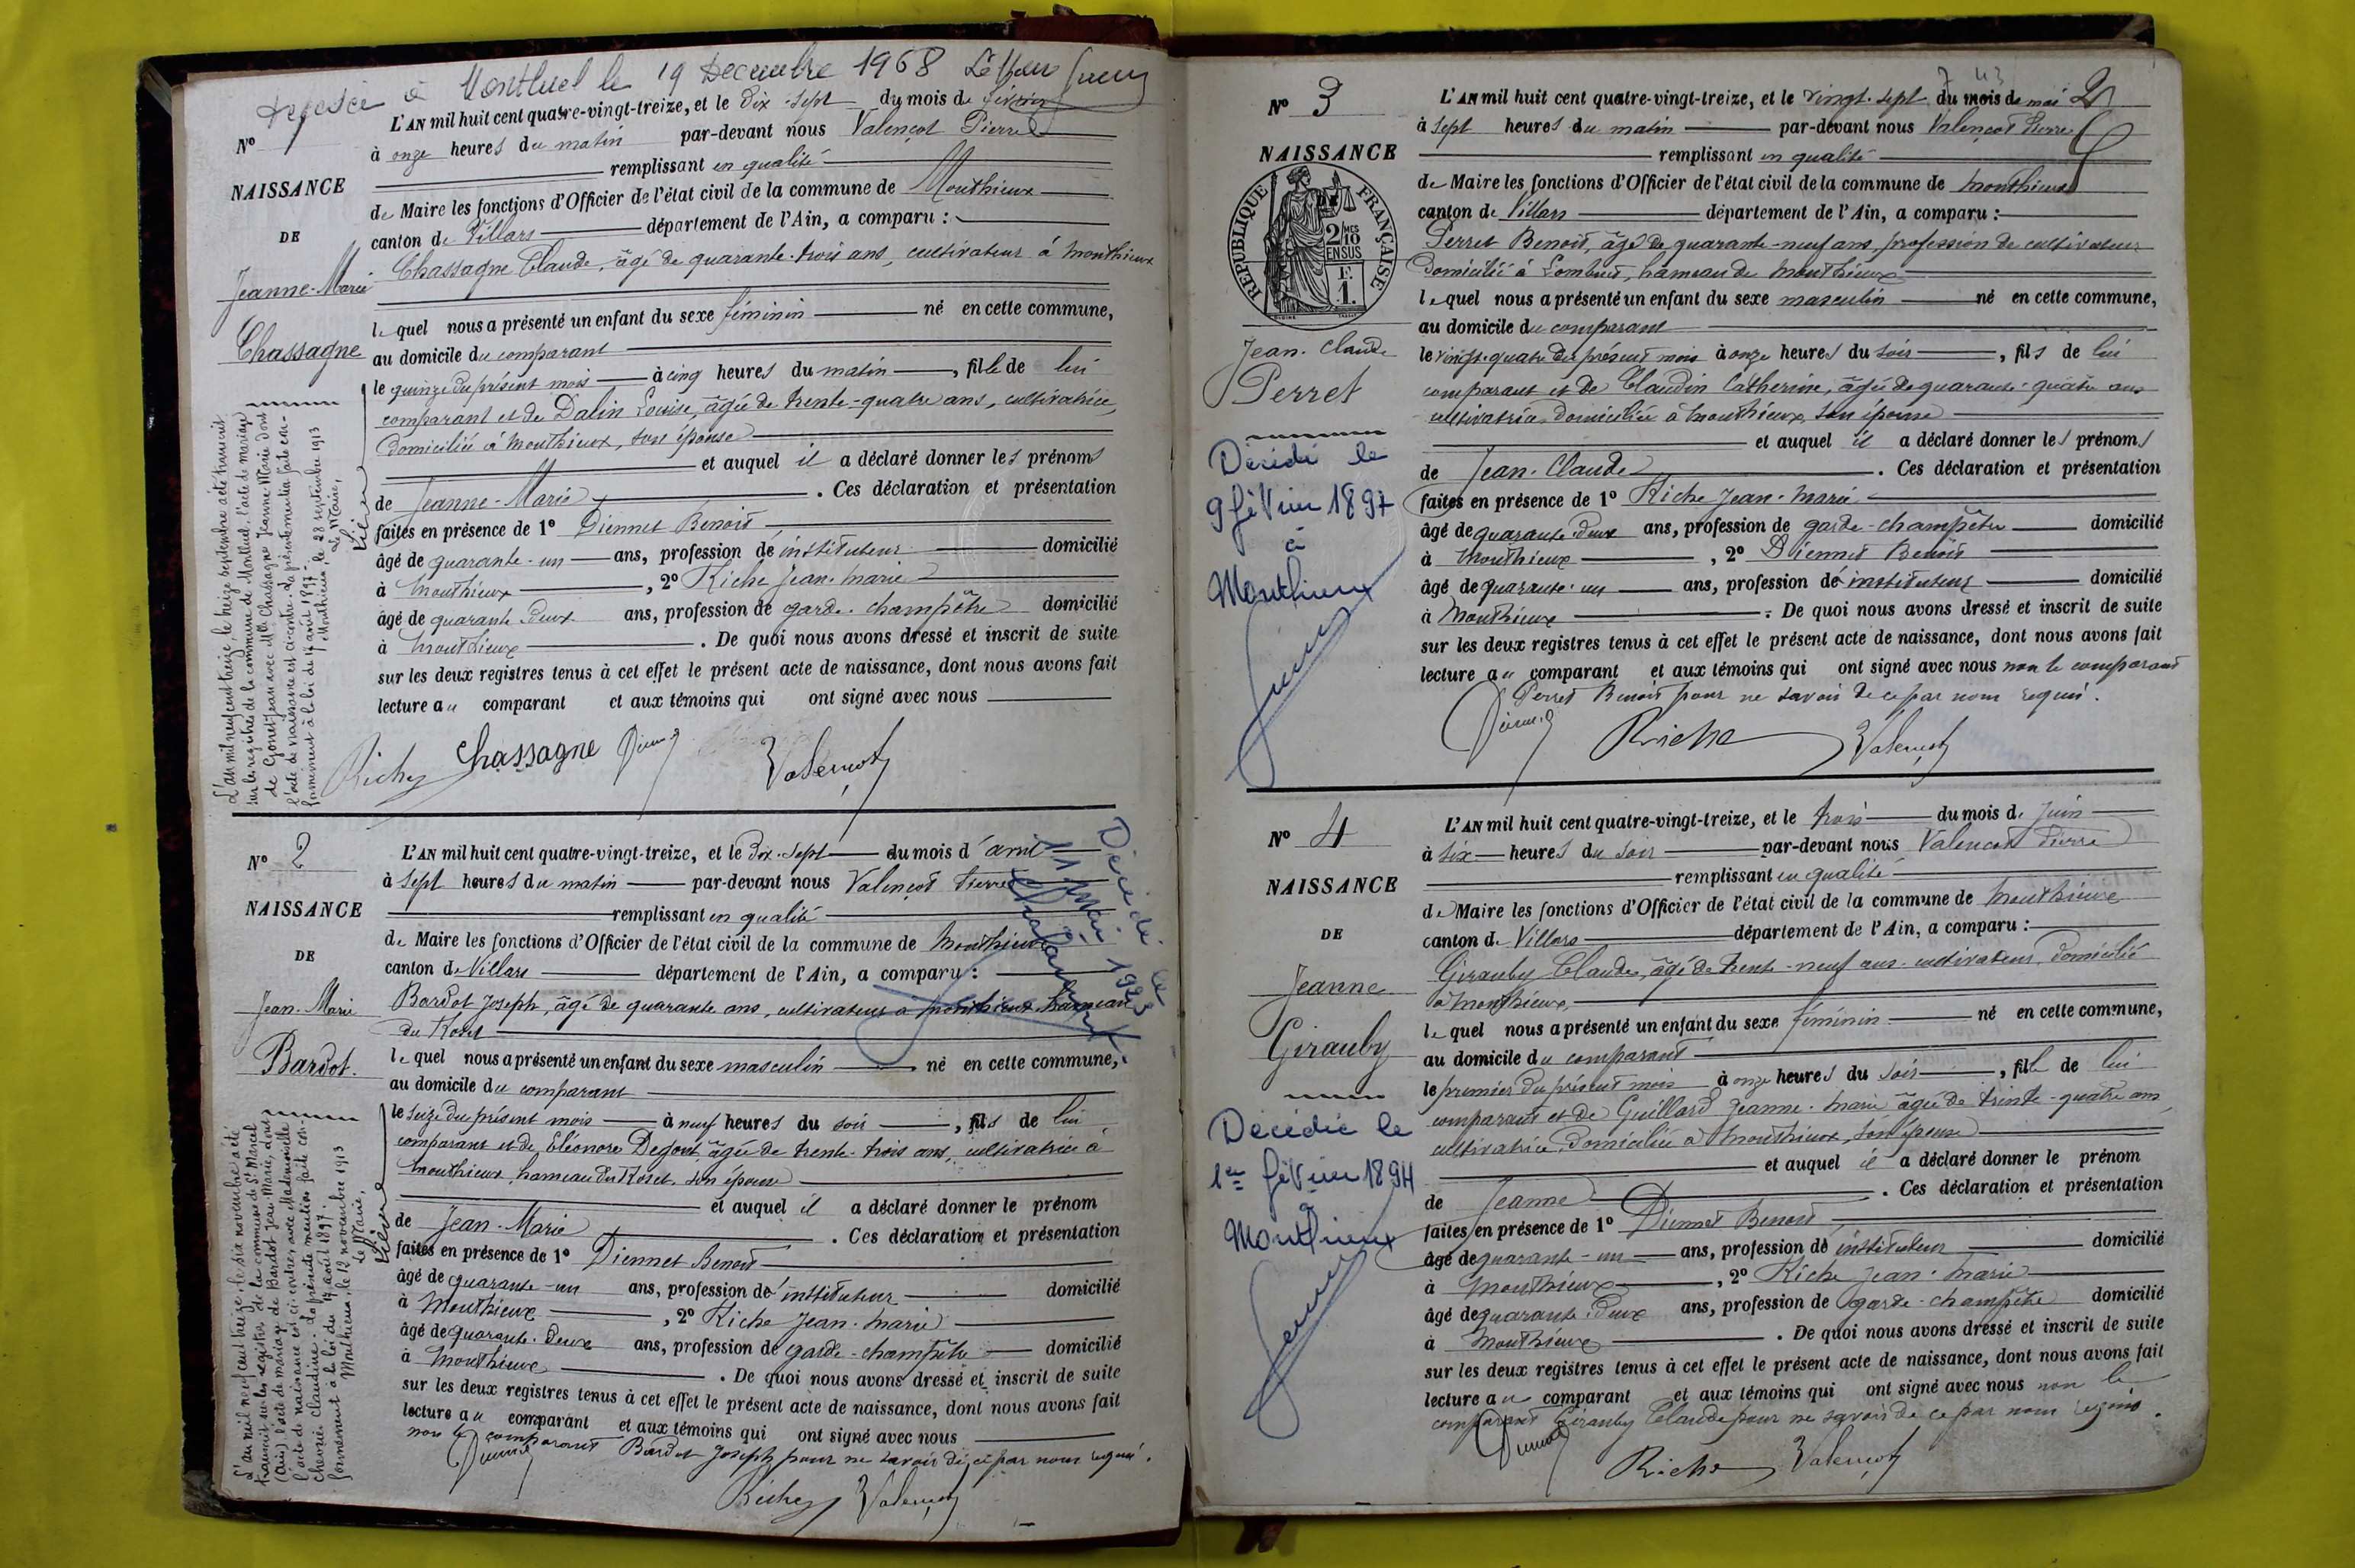 Décédée à Montluel le 19 Decembre 1968 Le Maire
L'AN mil huit cent quatre-vingt-treize, et le dix-sept du mois de février
N° 1
à onze heures du matin par-devant nous Valençot Pierre
remplissant en qualité
NAISSANCE
de Maire les fonctions d'Officier de l'état civil de la commune de Monthieux
DE
canton de Villars département de l'Ain, a comparu :
Jeanne-Marie
Chassagne Claude, âgé de quarante-trois ans, cultivateur à Monthieux
lequel nous a présenté un enfant du sexe féminin né en cette commune,
Chassagne
au domicile du comparant
le quinze du présent mois à cinq heures du matin, fille de lui
comparant et de Dalin Louise, âgée de trente-quatre ans, cultivatrice,
domiciliée à Monthieux, son épouse
et auquel il a déclaré donner les prénoms
de Jeanne-Marie. Ces déclaration et présentation
faites en présence de 1° Diennet Benoit
âgé de quarante-un ans, profession de instituteur domicilié
à Monthieux, 2° Riche Jean-Marie
âgé de quarante-deux ans, profession de garde-champêtre domicilié
à Monthieux. De quoi nous avons dressé et inscrit de suite
sur les deux registres tenus à cet effet le présent acte de naissance, dont nous avons fait
lecture au comparant et aux témoins qui ont signé avec nous
Riche Chassagne Diennet Valençot
L'an mil neuf cent treize, le treize septembre a été transcrit
sur les registres de la commune de Montluel, l'acte de mariage
de Gonet Jean avec Mlle Chassagne Jeanne-Marie dont
l'acte de naissance est ci-contre. La présente mention faite con-
formément à la loi du 17 août 1897.
Monthieux, le 28 septembre 1913
Le Maire,
N° 2
L'AN mil huit cent quatre-vingt-treize, et le dix-sept du mois d'avril
à sept heures du matin par-devant nous Valençot Pierre
NAISSANCE
remplissant en qualité
de Maire les fonctions d'Officier de l'état civil de la commune de Monthieux
DE
canton de Villars département de l'Ain, a comparu :
Jean-Marie
Bardot Joseph, âgé de quarante ans, cultivateur à Monthieux, hameau
du Roset
Bardot.
lequel nous a présenté un enfant du sexe masculin né en cette commune,
au domicile du comparant
le seize du présent mois à neuf heures du soir, fils de lui
comparant et de Eléonore Degout âgée de trente-trois ans, cultivatrice à
Monthieux, hameau du Roset, son épouse
et auquel il a déclaré donner le prénom
de Jean-Marie. Ces déclaration et présentation
faites en présence de 1° Diennet Benoit
âgé de quarante-un ans, profession de instituteur domicilié
à Monthieux, 2° Riche Jean-Marie
âgé de quarante-deux ans, profession de garde-champêtre domicilié
à Monthieux. De quoi nous avons dressé et inscrit de suite
sur les deux registres tenus à cet effet le présent acte de naissance, dont nous avons fait
lecture au comparant et aux témoins qui ont signé avec nous
non le comparant Bardot Joseph pour ne savoir de ce par nous requis.
Diennet Riche Valençot
Décédé le
11 Mai 1923
L'an mil neuf cent treize, le six novembre a été
transcrit sur les registres de la commune de St Marcel
(Ain) l'acte de mariage de Bardot Jean-Marie, dont
l'acte de naissance est ci-contre, avec Mademoiselle
Claudine. La présente mention faite con-
formément à la loi du 17 août 1897.
Monthieux, le 12 novembre 1913
Le Maire,
7 43
N° 3
L'AN mil huit cent quatre-vingt-treize, et le vingt-sept du mois de mai 2
à sept heures du matin par-devant nous Valençot Pierre
NAISSANCE
remplissant en qualité
DE
REPUBLIQUE FRANÇAISE
2 MES 10 EN SUS
F. 1.
de Maire les fonctions d'Officier de l'état civil de la commune de Monthieux
canton de Villars département de l'Ain, a comparu :
Perret Benoit, âgé de quarante-neuf ans, profession de cultivateur
domicilié à Lombuet, hameau de Monthieux
lequel nous a présenté un enfant du sexe masculin né en cette commune,
au domicile du comparant
Jean-Claude
Perret
le vingt-quatre du présent mois à onze heures du soir, fils de lui
comparant et de Claudin Catherine, âgée de quarante-quatre ans
cultivatrice domiciliée à Monthieux, son épouse
et auquel il a déclaré donner les prénoms
de Jean-Claude. Ces déclaration et présentation
faites en présence de 1° Riche Jean-Marie
âgé de quarante-deux ans, profession de garde-champêtre domicilié
à Monthieux, 2° Diennet Benoit
âgé de quarante-un ans, profession de instituteur domicilié
à Monthieux. De quoi nous avons dressé et inscrit de suite
sur les deux registres tenus à cet effet le présent acte de naissance, dont nous avons fait
lecture au comparant et aux témoins qui ont signé avec nous non le comparant
Perret Benoit pour ne savoir de ce par nous requis.
Diennet Riche Valençot
Décédé le
9 février 1897
à
Monthieux
N° 4
L'AN mil huit cent quatre-vingt-treize, et le trois du mois de Juin
à six heures du soir par-devant nous Valençot Pierre
remplissant en qualité
NAISSANCE
de Maire les fonctions d'Officier de l'état civil de la commune de Monthieux
DE
canton de Villars département de l'Ain, a comparu :
Girauby Claude, âgé de trente-neuf ans, cultivateur, domicilié
Jeanne
à Monthieux,
lequel nous a présenté un enfant du sexe féminin né en cette commune,
Girauby
au domicile du comparant
le premier du présent mois à onze heures du soir, fille de lui
comparant et de Guillard Jeanne-Marie âgée de trente-quatre ans,
cultivatrice, domiciliée à Monthieux, son épouse
et auquel il a déclaré donner le prénom
de Jeanne. Ces déclaration et présentation
faites en présence de 1° Diennet Benoit
âgé de quarante-un ans, profession de instituteur domicilié
à Monthieux, 2° Riche Jean-Marie
âgé de quarante-deux ans, profession de garde-champêtre domicilié
à Monthieux. De quoi nous avons dressé et inscrit de suite
sur les deux registres tenus à cet effet le présent acte de naissance, dont nous avons fait
lecture au comparant et aux témoins qui ont signé avec nous non le
comparant Girauby Claude pour ne savoir de ce par nous requis.
Diennet Riche Valençot
Décédée le
1er février 1894
à
Monthieux